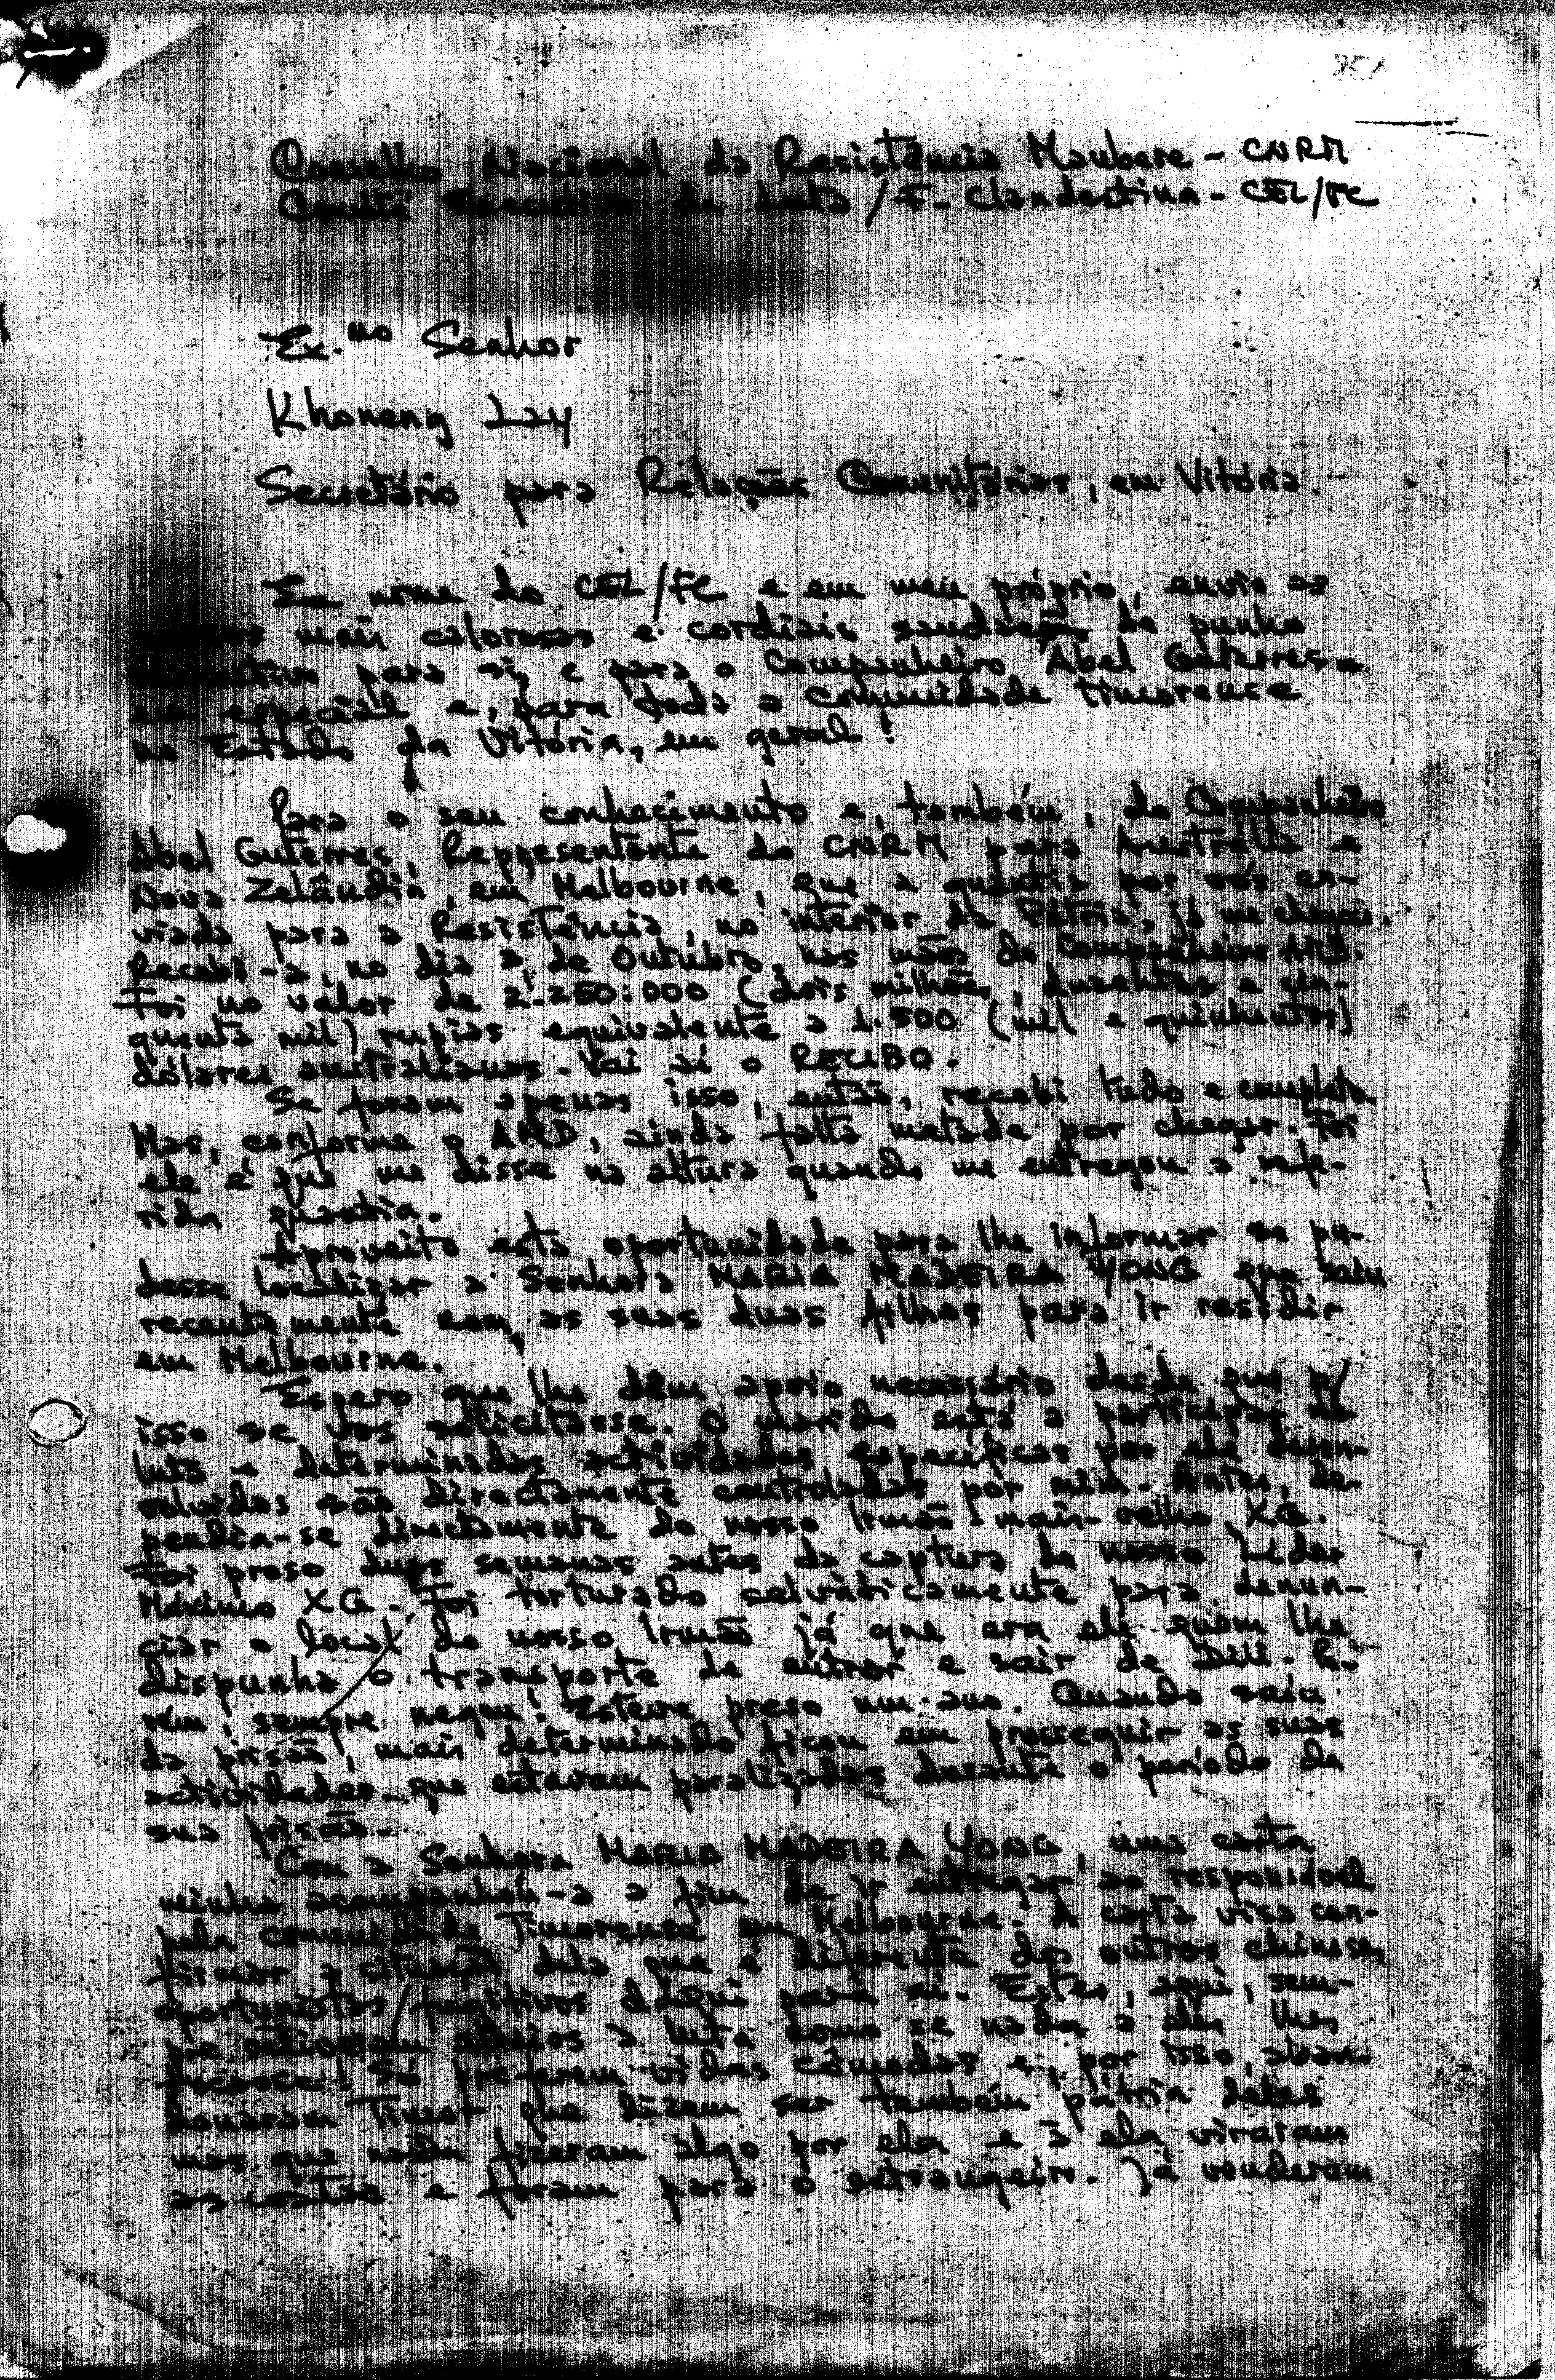 Conselho Nacional da Resistência Maubere - CNRM
Comité Executivo da Luta / F. Clandestina - CEL/FC
Ex.mo Senhor
Khoneng Lay
Secretário para Relações Comunitárias, em Vitória.
Em nome do CEL/FC e em meu próprio, envio as
mais calorosas e cordiais saudações de punho
para si, e para o Companheiro Abel Guterres
em especial e, para toda a comunidade timorense
no Estado da Vitória, em geral!
Para o seu conhecimento e, também, do Companheiro
Abel Guterres, Representante do CNRM para Austrália e
Nova Zelândia, em Melbourne, que a quantia por vós en-
viada para a Resistência, no interior da Pátria, já me chegou.
Recebi-a, no dia de Outubro, nas mãos do Companheiro
Foi no valor de 2.250:000 (dois milhões, duzentos e cin-
quenta mil) rupias equivalente a 1.500 (mil e quinhentos)
dólares australianos. Vai aí o RECIBO.
Se foram apenas isso, então, recebi tudo e completo.
Mas, conforme o ainda falta metade por chegar. Foi
ele é que me disse na altura quando me entregou a refe-
rida quantia.
Aproveito esta oportunidade para lhe informar se pu-
desse localizar a Senhora MARIA MADEIRA YONG que saiu
recentemente com as suas duas filhas para ir residir
em Melbourne.
Espero que lhe dêm apoio necessário desde que p/
isso se vos solicitasse. O marido está a participar na
luta e determinadas actividades específicas por ele desen-
volvidas são directamente controladas por mim. Antes, de-
pendia-se directamente do nosso Irmão mais-velho, XG.
Foi preso duas semanas antes da captura do nosso Líder
Máximo XG. Foi torturado selváticamente para denun-
ciar o local do nosso Irmão já que era ele quem lhe
dispunha o transporte de entrar e sair de Dili. Po-
rém, sempre negou! Esteve preso um ano. Quando saiu
da prisão, mais determinado ficou em prosseguir as suas
actividades que estavam paralizadas durante o período da
sua prisão.
Com a Senhora MARIA MADEIRA YONG, uma carta
minha acompanhou-a a fim de ir entregar ao responsável
pela comunidade Timorense em Melbourne. A carta visa con-
firmar a situação dela que é diferente dos outros chineses
oportunistas/fugitivos daqui para aí. Estes, aqui, sem-
pre estiveram alheios à luta como se nada a eles lhes
Só preferem vidas cómodas e, por isso, aban-
donaram Timor que dizem ser também pátria deles
mas que nada fizeram algo por ela e à ela viraram
as costas e foram para o estrangeiro. Já venderam